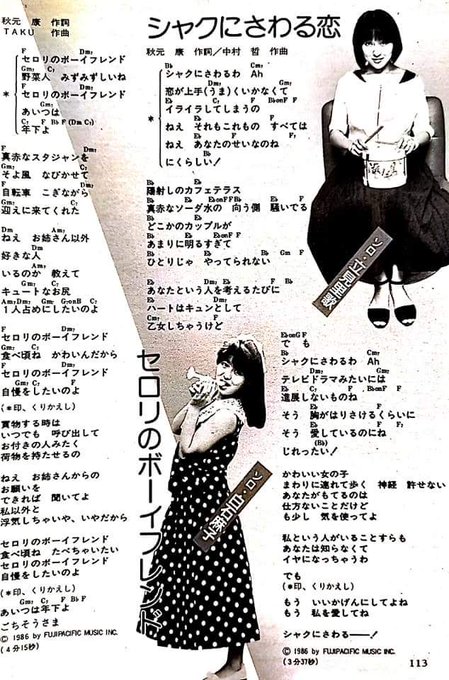 秋元 康 作詞
TAKU 作曲
F Dm7
セロリのボーイフレンド
Gm7 C7
野菜人 みずみずしいね
F Dm7
* セロリのボーイフレンド
Gm7
あいつは
C7 F B♭ F (Dm C7)
年下よ
F Dm7
真赤なスタジャンを
Gm7 C7
そよ風 なびかせて
F Dm7
自転車 こぎながら
Gm7 C7
迎えに来てくれた
Dm Am
ねえ お姉さん以外
Dm
好きな人
Am
いるのか 教えて
Gm C7
キュートなお尻
Am7 Dm7 Gm GmonB C7
1人占めにしたいのよ
F Dm7
セロリのボーイフレンド
Gm7 C7
食べ頃ね かわいんだから
F Dm7
セロリのボーイフレンド
Gm7 C7 F
自慢をしたいのよ
(*印、くりかえし)
買物する時は
いつでも 呼び出して
お付きの人みたく
荷物を持たせるの
ねえ お姉さんからの
お願いを
できれば 聞いてよ
私以外と
浮気しちゃいや、いやだから
セロリのボーイフレンド
食べ頃ね たべちゃいたい
セロリのボーイフレンド
自慢をしたいのよ
(*印、くりかえし)
Gm7 C7 F B♭ F
あいつは年下よ
ごちそうさま
©1986 by FUJIPACIFIC MUSIC INC.
(4分15秒)
セロリのボーイフレンド
ソロ・白石麻子
シャクにさわる恋
秋元 康 作詞/中村 哲 作曲
B♭ Cm7
シャクにさわるわ Ah
Dm7 Gm7
恋が上手(うま)くいかなくて
E♭ C7 F B♭onF F
* イライラしてしまうの
B♭ Cm7
ねえ それもこれもの すべては
Dm7 Gm7
ねえ あなたのせいなのね
E♭ F B♭
にくらしい!
B♭ E♭ B♭
陽射しのカフェテラス
B♭ E♭ E♭onF F B♭
真赤なソーダ水の 向う側 騒いでる
B♭ E♭ B♭
どこかのカップルが
B♭ E♭onF F
あまりに明るすぎて
E♭ B♭ Gm F
ひとりじゃ やってられない
E♭ Dm7 E♭ F B♭
あなたという人を考えるたびに
E♭ Dm7
ハートはキュンとして
C7 F
乙女しちゃうけど
E♭onG F
でも
B♭ Cm7
シャクにさわるわ Ah
Dm7 Gm7
テレビドラマみたいには
E♭ C7 F B♭onF F
進展しないものね
B♭ Cm7
そう 胸がはりさけるくらいに
Dm7 Gm7
そう 愛しているのにね
E♭ F B♭
じれったい!
かわいい女の子
まわりに連れて歩く 神経 許せない
あなたがもてるのは
仕方ないことだけど
も少し 気を使ってよ
私という人がいることすらも
あなたは知らなくて
イヤになっちゃうわ
でも
(*印、くりかえし)
もう いいかげんにしてよね
もう 私を愛してね
シャクにさわる――!
©1986 by FUJIPACIFIC MUSIC INC.
(3分37秒)
113